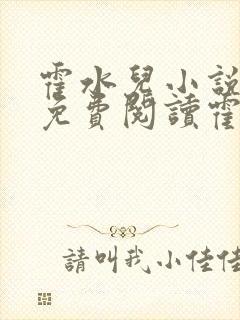 霍水兒小說
免費閱讀霍
請叫我小佳佳